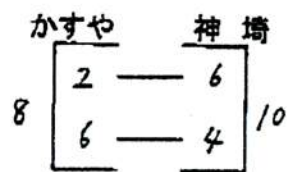 かすや 神埼
2 — 6
8 10
6 — 4